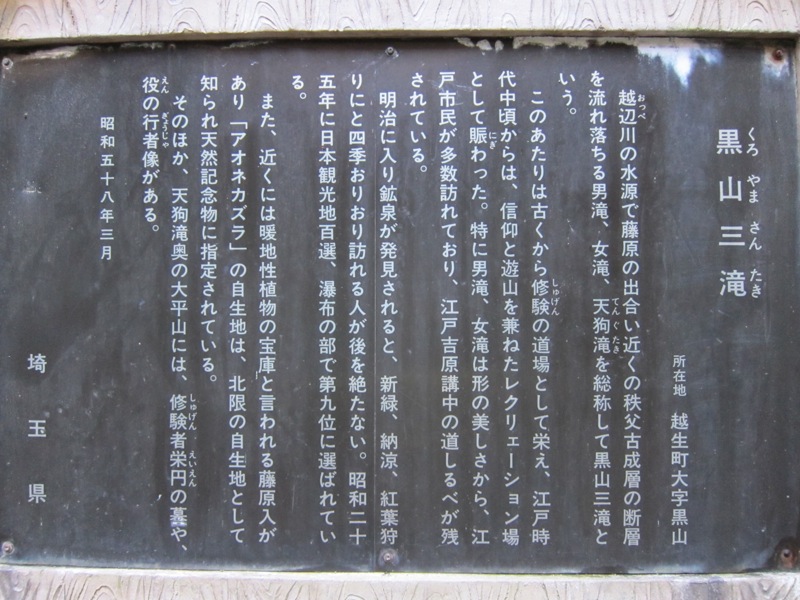 黒山三滝
くろ やま さん たき
所在地 越生町大字黒山
越辺川の水源で藤原の出合い近くの秩父古成層の断層
おっぺ
を流れ落ちる男滝、女滝、天狗滝を総称して黒山三滝と
てんぐたき
いう。
このあたりは古くから修験の道場として栄え、江戸時
しゅげん
代中頃からは、信仰と遊山を兼ねたレクリェーション場
として賑わった。特に男滝、女滝は形の美しさから、江
にぎ
戸市民が多数訪れており、江戸吉原講中の道しるべが残
されている。
明治に入り鉱泉が発見されると、新緑、納涼、紅葉狩
りにと四季おりおり訪れる人が後を絶たない。昭和二十
五年に日本観光地百選、瀑布の部で第九位に選ばれてい
る。
また、近くには暖地性植物の宝庫と言われる藤原入が
あり「アオネカズラ」の自生地は、北限の自生地として
知られ天然記念物に指定されている。
そのほか、天狗滝奥の大平山には、修験者栄円の墓や、
しゅげん えいえん
役の行者像がある。
えん ぎょうじゃ
昭和五十八年三月
埼玉県